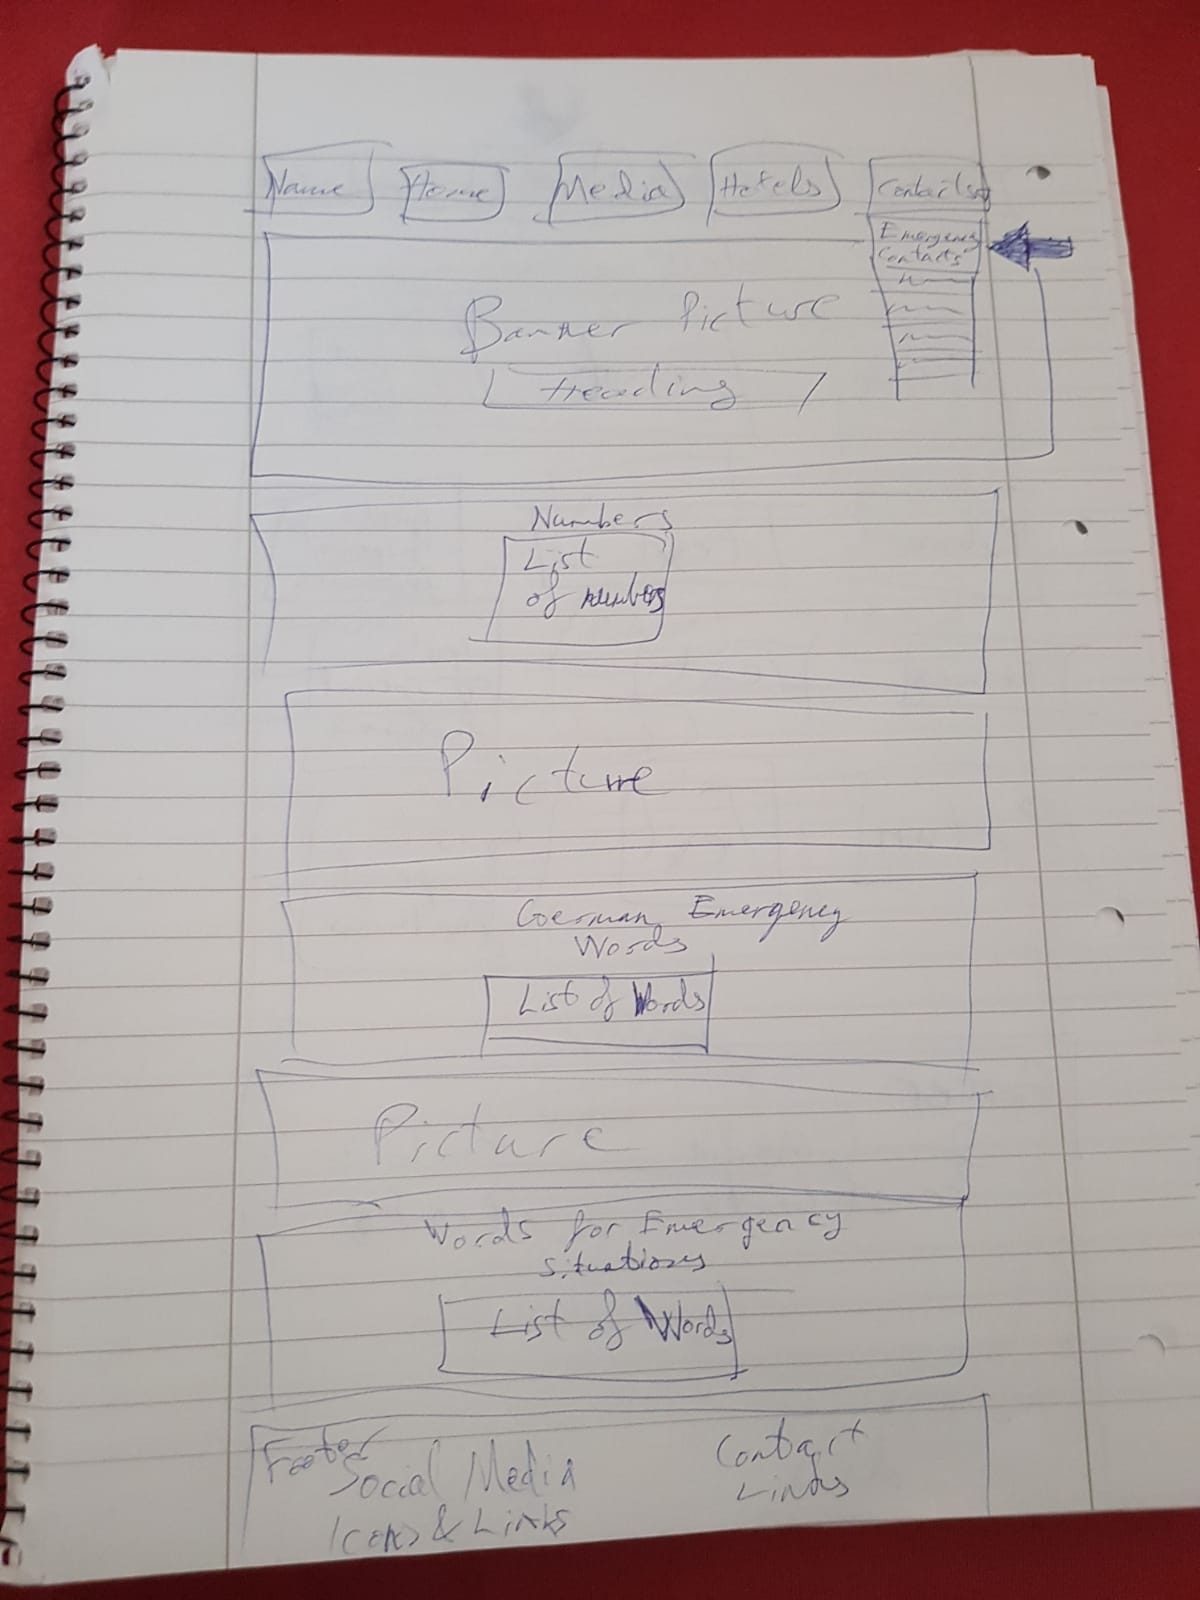 Name Home Media Hotels Contacts
Emergency
Contacts
Banner Picture
Heading
Numbers
List
of numbers
Picture
German Emergency
Words
List of Words
Picture
Words for Emergency
situations
List of Words
Footer
Social Media
Icons & Links
Contact